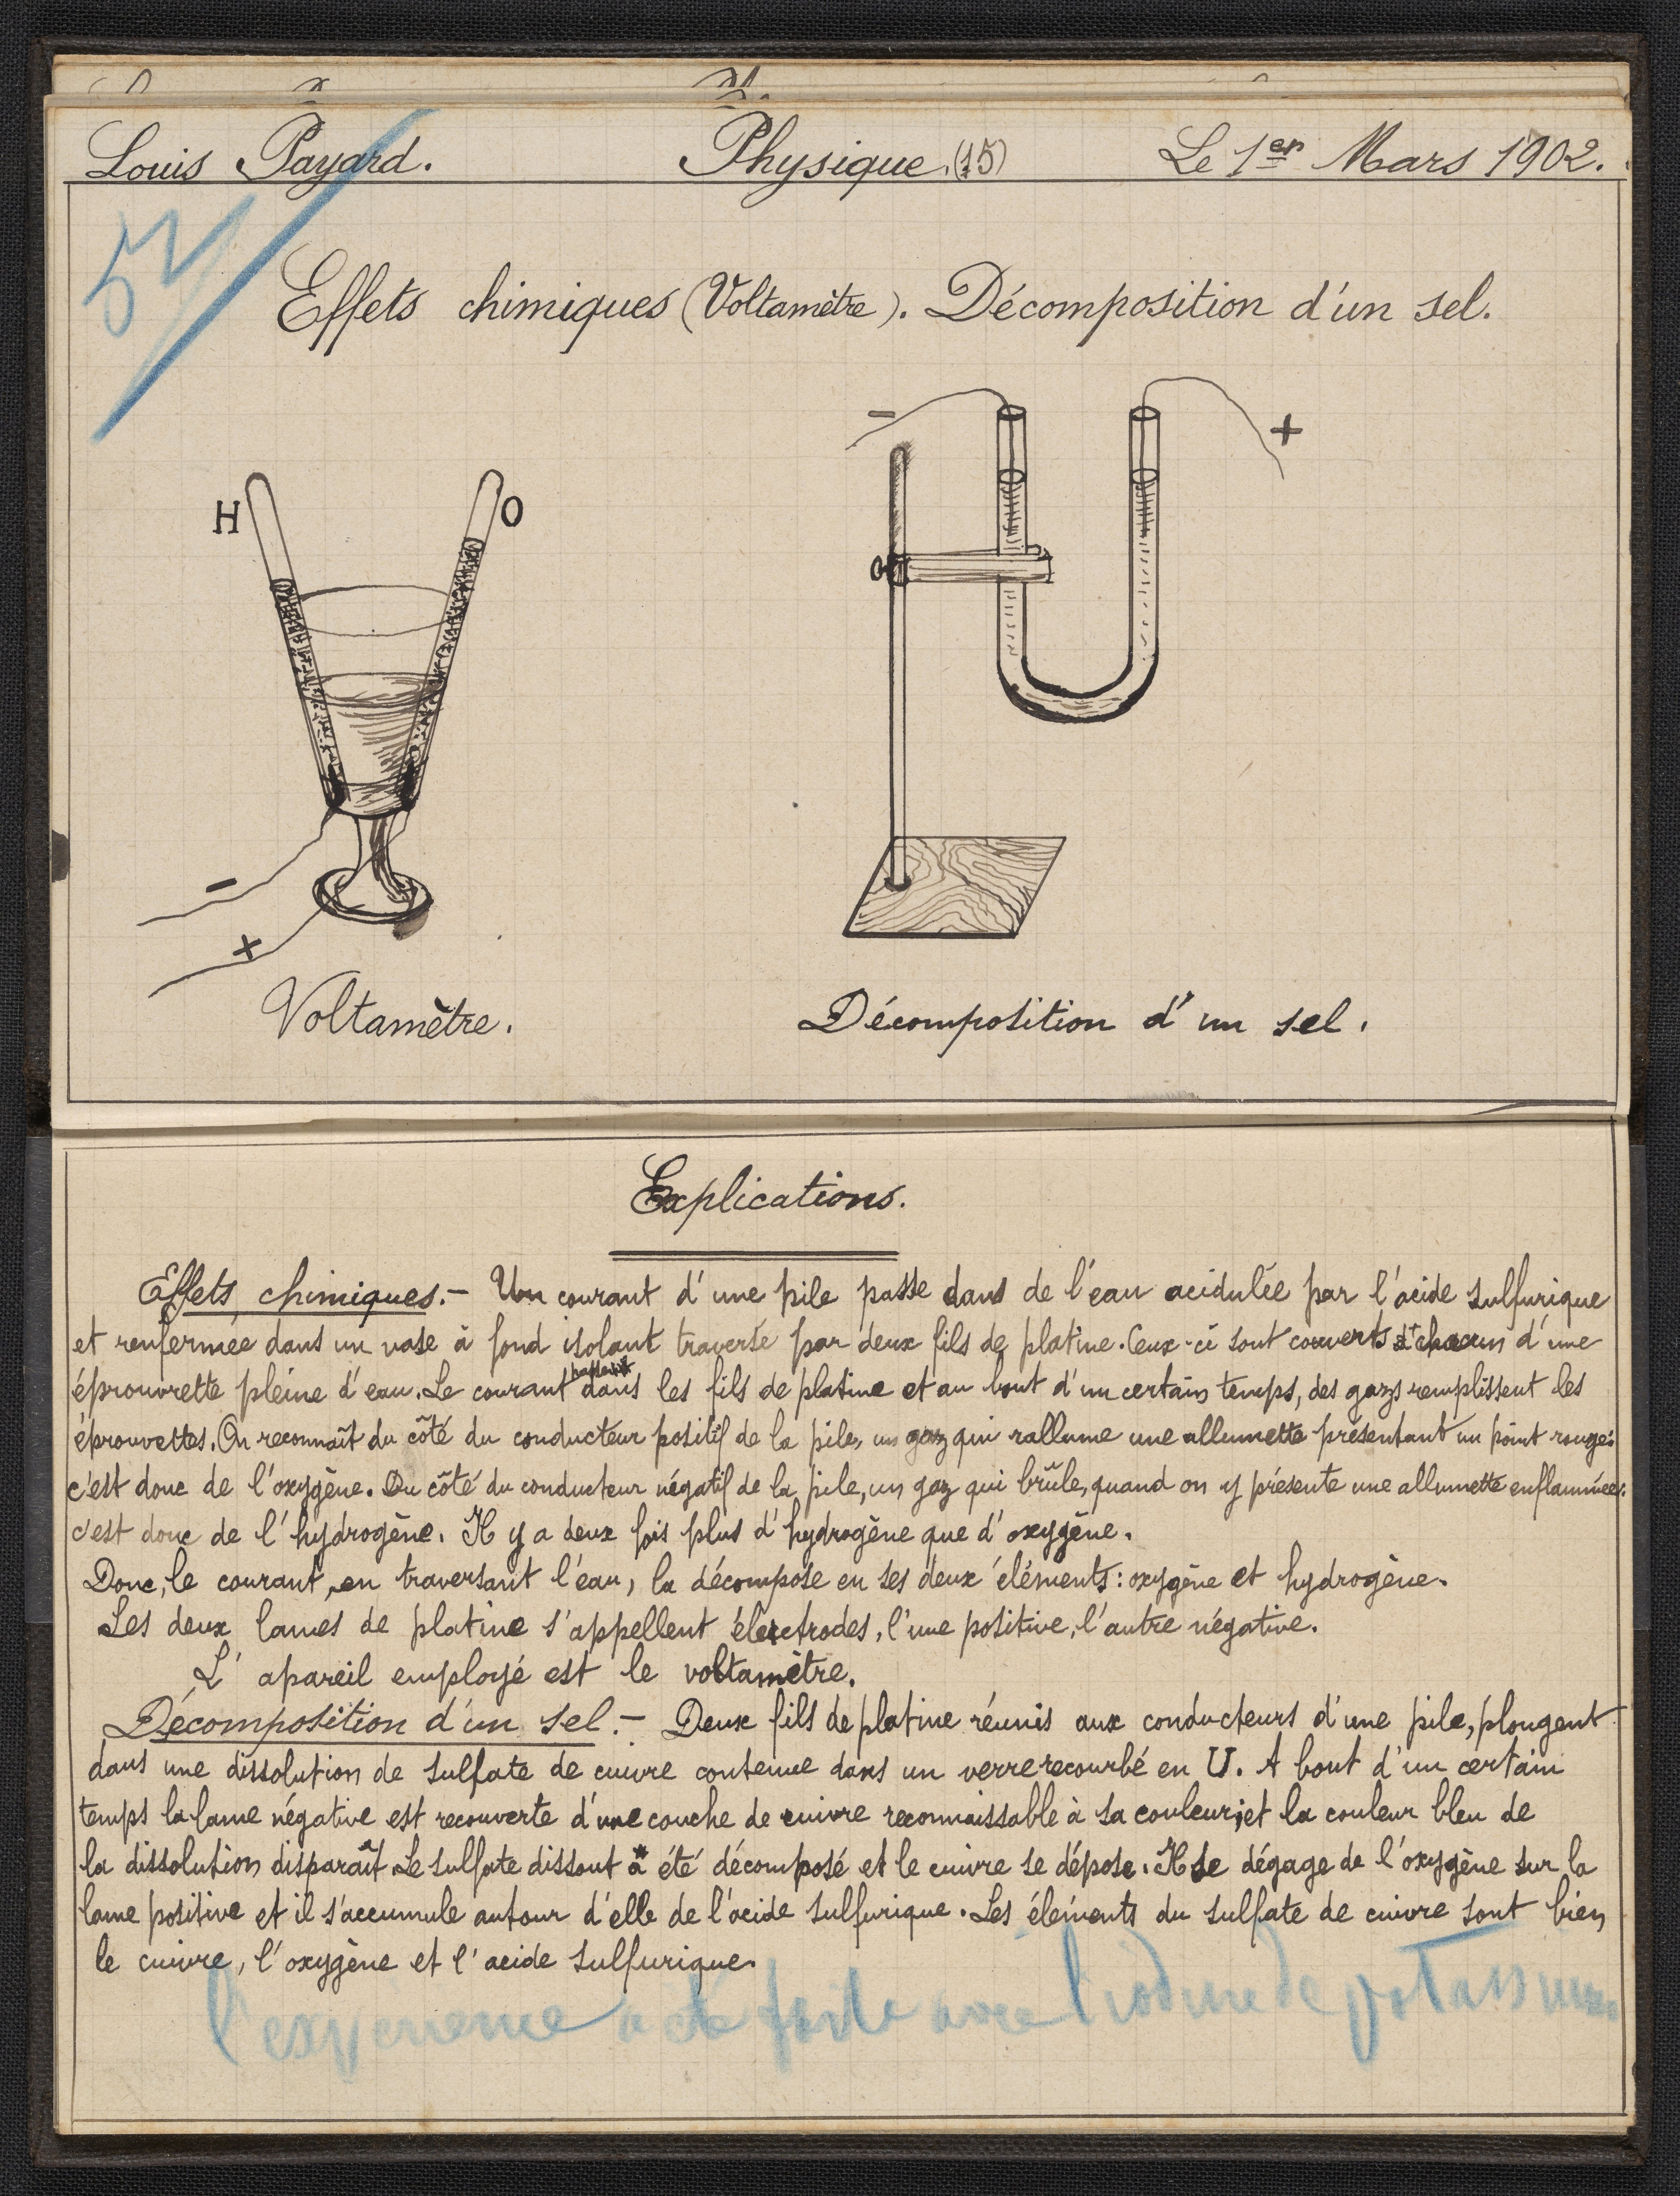 Louis Payard. Physique.(15) Le 1er Mars 1902.
5
Effets chimiques (Voltamètre). Décomposition d'un sel.
- +
H O
-
+
Voltamètre. Décomposition d'un sel.
Explications.
Effets chimiques.- Un courant d'une pile passe dans de l'eau acidulée par l'acide sulfurique
et renfermée dans un vase à fond isolant traversé par deux fils de platine. Ceux-ci sont couverts chacun d'une
éprouvrette pleine d'eau. Le courant dans les fils de platine et au bout d'un certain temps, des gazs remplissent les
éprouvettes. On reconnaît du côté du conducteur positif de la pile, un gaz qui rallume une allumette présentant un point rouge:
c'est donc de l'oxygène. Du côté du conducteur négatif de la pile, un gaz qui brûle, quand on y présente une allumette enflammée:
c'est donc de l'hydrogène. Il y a deux fois plus d'hydrogène que d'oxygène.
Donc, le courant, en traversant l'eau, la décompose en ses deux éléments: oxygène et hydrogène.
Les deux lames de platine s'appellent électrodes, l'une positive, l'autre négative.
L'apareil employé est le voltamètre.
Décomposition d'un sel.- Deux fils de platine réunis aux conducteurs d'une pile, plongent
dans une dissolution de sulfate de cuivre contenue dans un verre recourbé en U. A bout d'un certain
temps la lame négative est recouverte d'une couche de cuivre reconnaissable à sa couleur; et la couleur bleu de
la dissolution disparaît. Le sulfate dissout a été décomposé et le cuivre se dépose. Il se dégage de l'oxygène sur la
lame positive et il s'accumule autour d'elle de l'acide sulfurique. Les éléments du sulfate de cuivre sont bien
le cuivre, l'oxygène et l'acide sulfurique.
l'expérience a été faite avec l'iodure de potassium